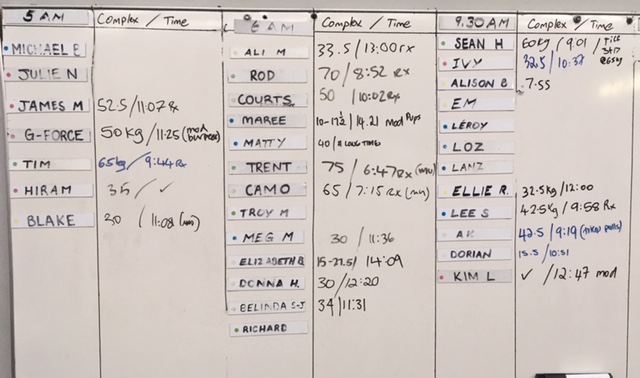 5 AM Complex / Time
MICHAEL B
JULIE N
JAMES M 52.5/11:07 Rx
G-FORCE 50kg/11:25 (mod burpees)
TIM 65kg/9:44 Rx
HIRAM 35/✓
BLAKE 30/11:08 (m)
6 AM Complex / Time
ALI M 33.5/13:00 rx
ROD 70/8:52 Rx
COURTS 50/10:02 Rx
MAREE 10-17½/14.21 mod Pups
MATTY 40/A LONG TIME
TRENT 75/6:47 Rx
CAMO 65/7:15 Rx
TROY M
MEG M 30/11:36
ELIZABETH B 15-22.5/14:09
DONNA H. 30/12:20
BELINDA S-J 34/11:31
RICHARD
9.30AM Complex / Time
SEAN H 60kg/9:01/
IVY 32.5/10:37
ALISON B 7:55
EM
LEROY
LOZ
LANZ
ELLIE R. 32.5kg/12:00
LEE S 42.5kg/9:58 Rx
AK 42.5/9:19
DORIAN 15.5/10:51
KIM L ✓/12:47 mod